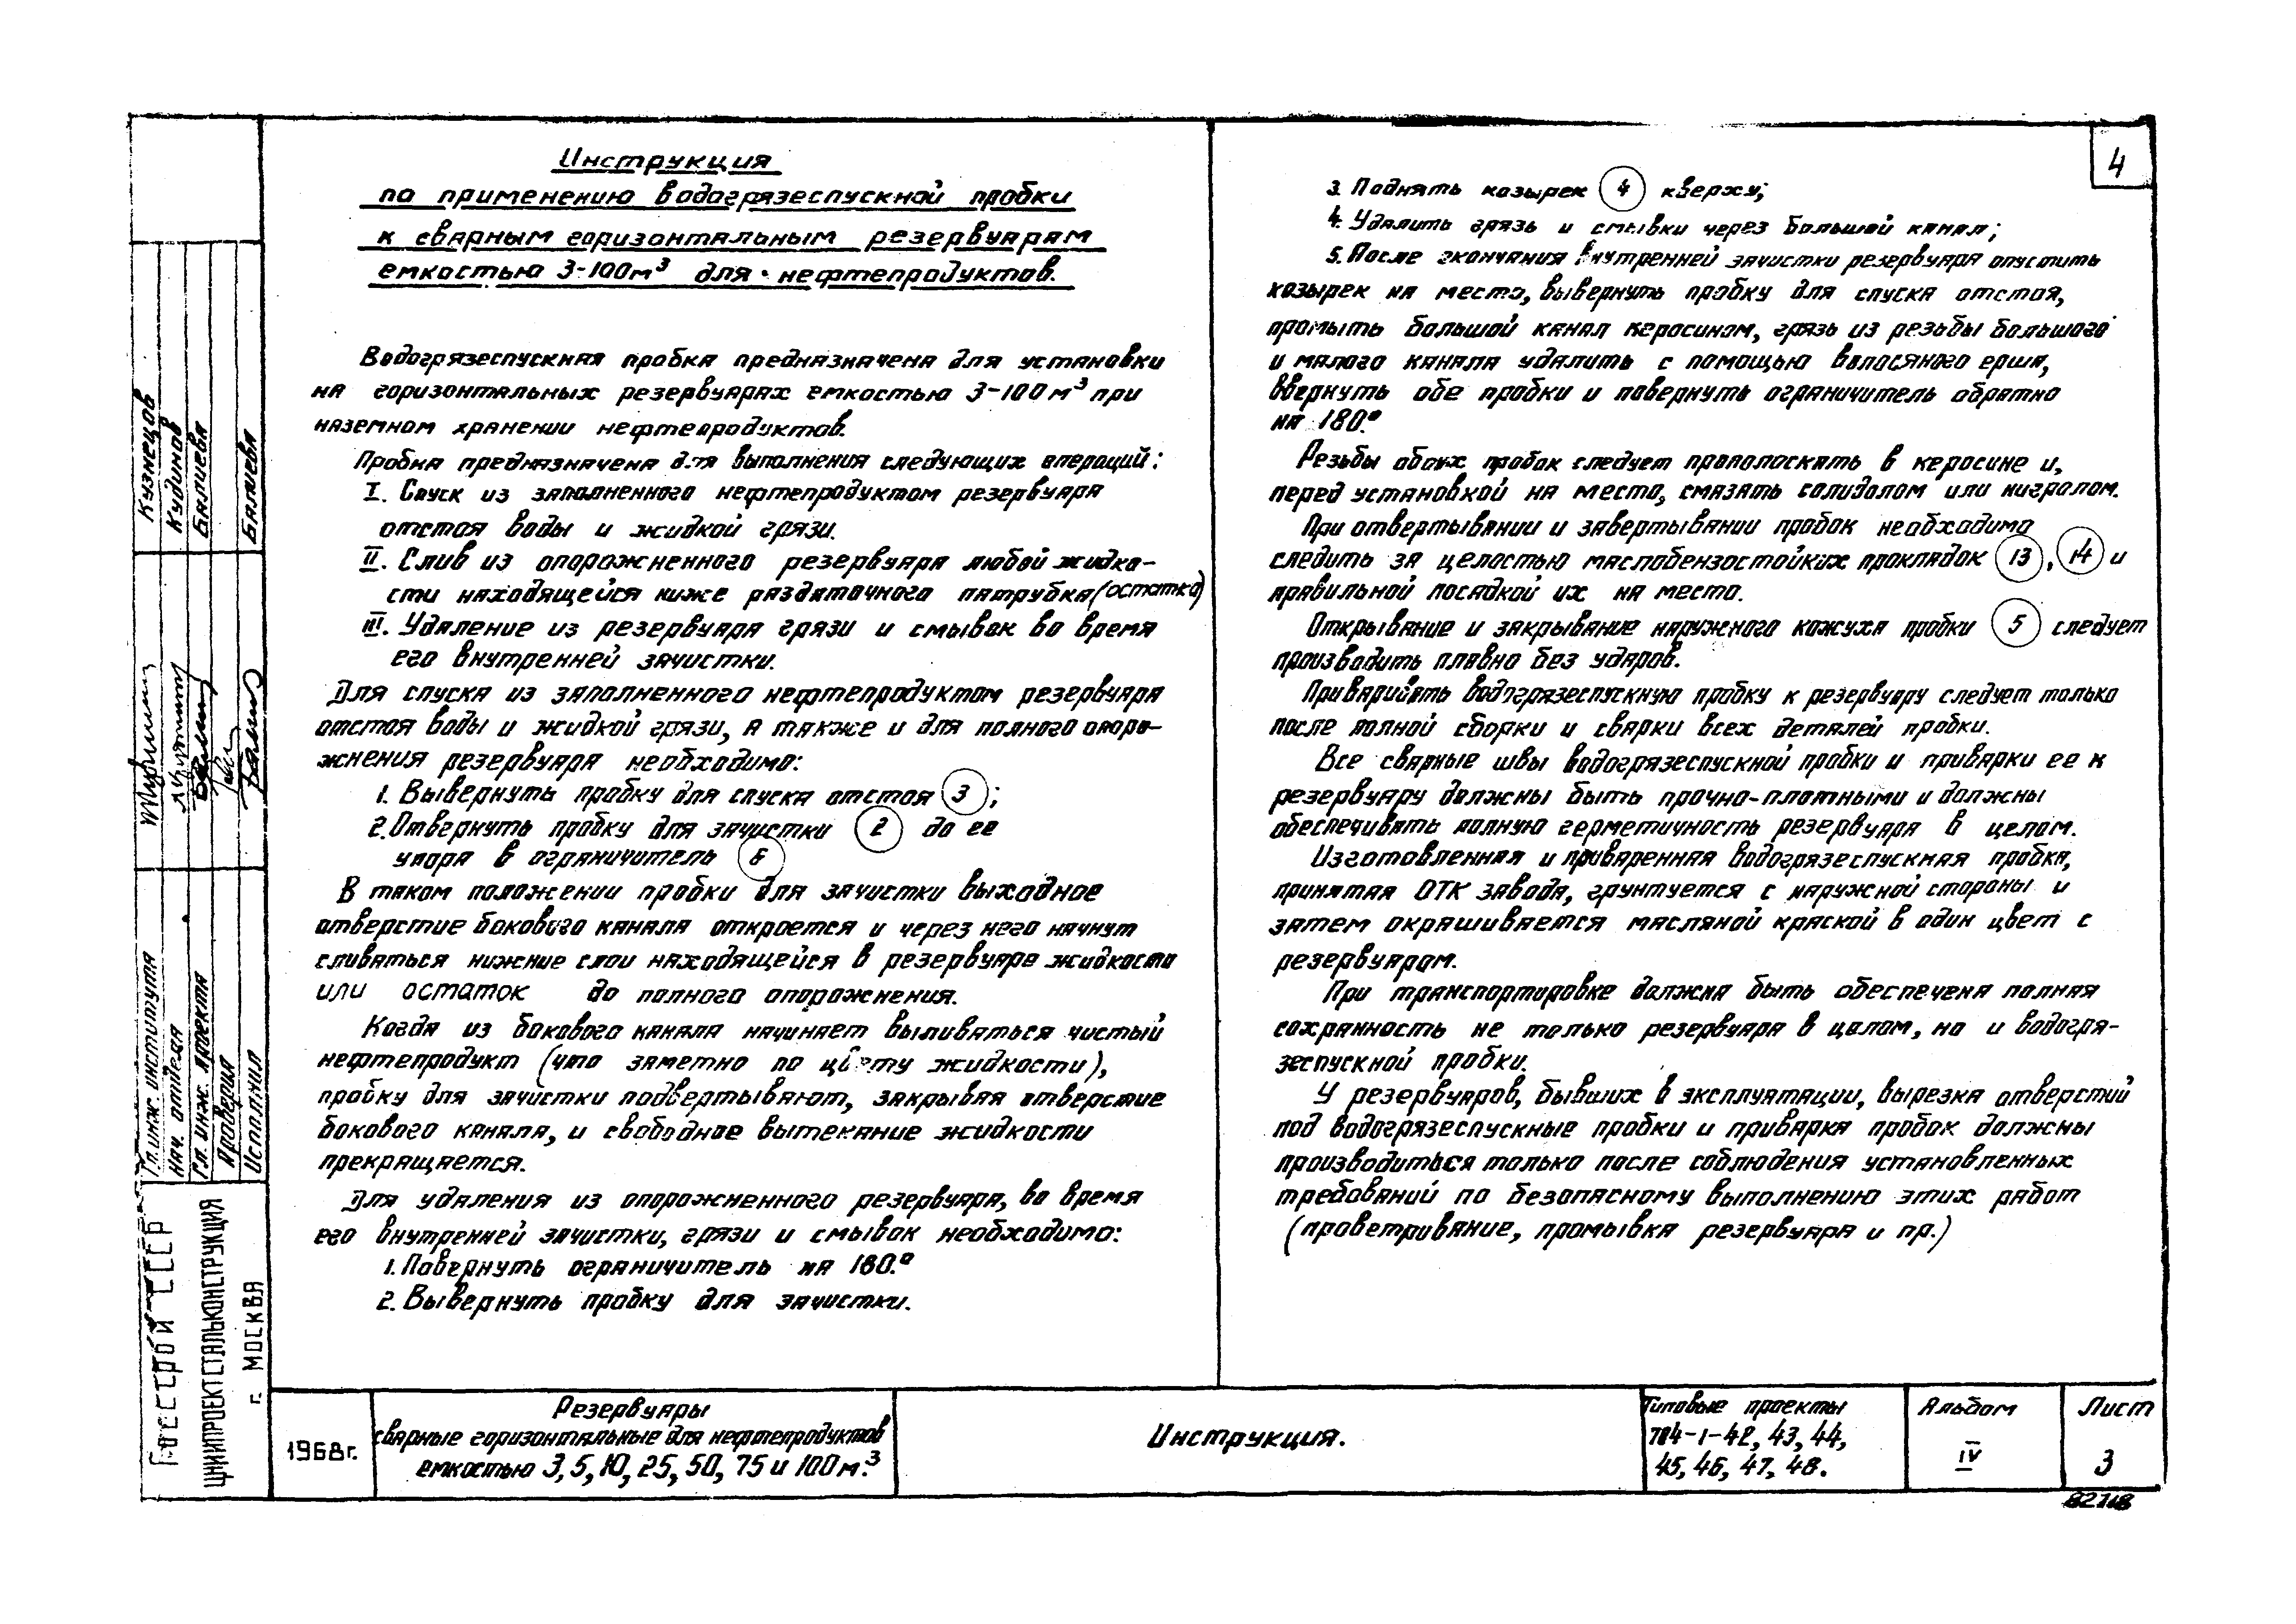 Инструкция
по применению водогрязеспускной пробки
к сварным горизонтальным резервуарам
емкостью 3-100м³ для нефтепродуктов.
Водогрязеспускная пробка предназначена для установки
на горизонтальных резервуарах емкостью 3-100м³ при
наземном хранении нефтепродуктов.
Пробка предназначена для выполнения следующих операций:
I. Спуск из заполненного нефтепродуктом резервуара
отстоя воды и жидкой грязи.
II. Слив из опорожненного резервуара любой жидко-
сти находящейся ниже раздаточного патрубка (остатка)
III. Удаление из резервуара грязи и смывок во время
его внутренней зачистки.
Для спуска из заполненного нефтепродуктом резервуара
отстоя воды и жидкой грязи, а также и для полного опоро-
жнения резервуара необходимо:
1. Вывернуть пробку для спуска отстоя 3;
2. Отвернуть пробку для зачистки 2 до ее
упора в ограничитель 6
В таком положении пробки для зачистки выходное
отверстие бокового канала откроется и через него начнут
сливаться нижние слои находящейся в резервуаре жидкости
или остаток до полного опорожнения.
Когда из бокового канала начинает выливаться чистый
нефтепродукт (что заметно по цвету жидкости),
пробку для зачистки подвертывают, закрывая отверстие
бокового канала, и свободное вытекание жидкости
прекращается.
Для удаления из опорожненного резервуара, во время
его внутренней зачистки, грязи и смывок необходимо:
1. Повернуть ограничитель на 180.°
2. Вывернуть пробку для зачистки.
4
3. Поднять козырек 4 кверху;
4. Удалить грязь и смывки через большой канал;
5. После окончания внутренней зачистки резервуара опустить
козырек на место, вывернуть пробку для спуска отстоя,
промыть большой канал керосином, грязь из резьбы большого
и малого канала удалить с помощью волосяного ерша,
ввернуть обе пробки и повернуть ограничитель обратно
на 180.°
Резьбы обоих пробок следует прополоскать в керосине и,
перед установкой на место, смазать солидолом или нигролом.
При отвертывании и завертывании пробок необходимо
следить за целостью маслобензостойких прокладок 13, 14 и
правильной посадкой их на место.
Открывание и закрывание наружного кожуха пробки 5 следует
производить плавно без ударов.
Приваривать водогрязеспускную пробку к резервуару следует только
после полной сборки и сварки всех деталей пробки.
Все сварные швы водогрязеспускной пробки и приварки ее к
резервуару должны быть прочно-плотными и должны
обеспечивать полную герметичность резервуара в целом.
Изготовленная и приваренная водогрязеспускная пробка,
принятая ОТК завода, грунтуется с наружной стороны и
затем окрашивается масляной краской в один цвет с
резервуаром.
При транспортировке должна быть обеспечена полная
сохранность не только резервуара в целом, но и водогря-
зеспускной пробки.
У резервуаров, бывших в эксплуатации, вырезка отверстий
под водогрязеспускные пробки и приварка пробок должны
производиться только после соблюдения установленных
требований по безопасному выполнению этих работ
(проветривание, промывка резервуара и пр.)
Гл. инж. института Кузнецов
Нач. отдела Кудинов
Гл. инж. проекта Балиева
Проверил
Исполнил Балиева
Госстрой СССР
ЦНИИПРОЕКТСТАЛЬКОНСТРУКЦИЯ
г. МОСКВА
1968г.
Резервуары
сварные горизонтальные для нефтепродуктов
емкостью 3, 5, 10, 25, 50, 75 и 100м.³
Инструкция.
Типовые проекты
704-1-42, 43, 44,
45, 46, 47, 48.
Альбом
IV
Лист
3